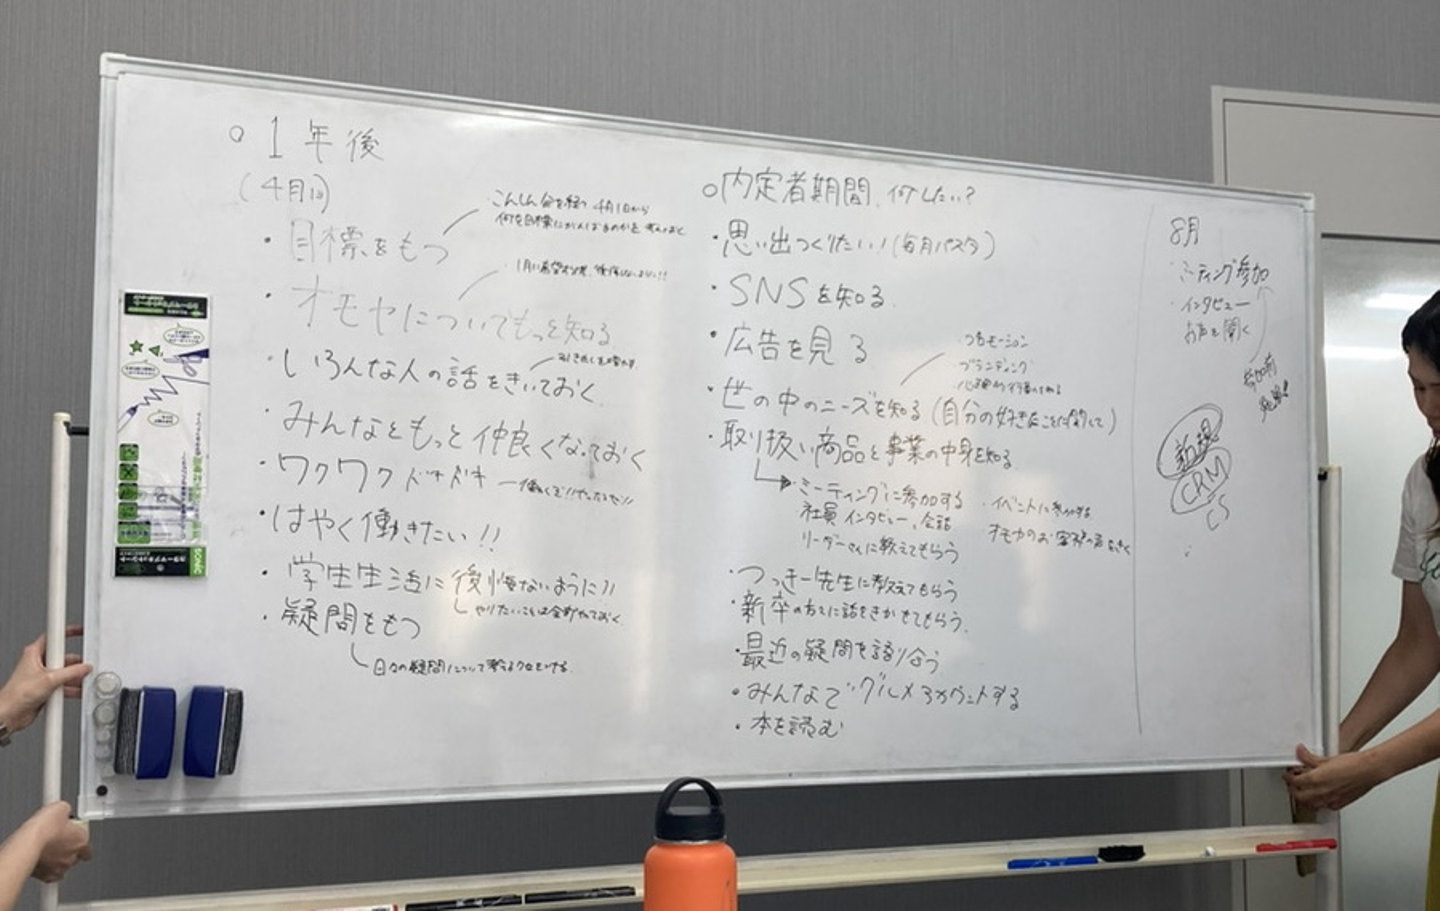 ○ 1年後
(4月1日)
・目標をもつ
こんしん会を経て 4月1日から
何を目標にがんばるのかを考えておく
・オモヤについてもっと知る
1月に希望
・いろんな人の話をきいておく
・みんなともっと仲良くなっておく
・ワクワクドキドキ
働くぞ!!やったるぞ!!
・はやく働きたい!!
・学生生活に後悔ないように!!
やりたいことは全部やっておく
・疑問をもつ
日々の疑問について考えるクセをつける
○内定者期間、何したい?
・思い出つくりたい!(毎月パスタ)
・SNSを知る
・広告を見る
・世の中のニーズを知る(自分の好きなことに関して)
・ブランディング
・取り扱い商品と事業の中身を知る
・ミーティングに参加する
社員インタビュー、会話
リーダーさんに教えてもらう
・イベントに参加する
オモヤのお客様の声をきく
・つっきー先生に教えてもらう
・新卒の方々に話をきかせてもらう
・最近の疑問を語り合う
・みんなでグルメアカウントする
・本を読む
8月
・ミーティング参加
・インタビュー
お声を聞く
新規
CRM
CS
SONIC